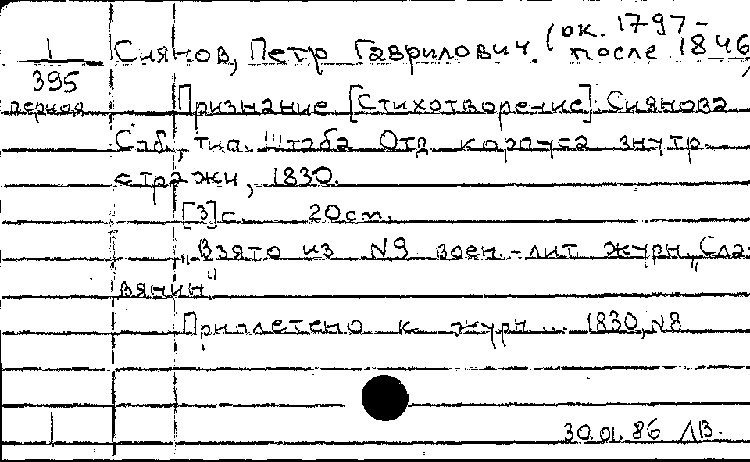 1
395
период
Сиянов, Петр Гаврилович. (ок. 1797-
после 1846)
Признание [Стихотворение]. Сиянова
Спб., тип. Штаба Отд. корпуса внутр.
стражи, 1830.
[3]с. 20см.
"Взято из №9 воен.-лит. журн. "Сла-
вянин"
Приплетено к журн... 1830, №8
30.01.86 ЛВ.